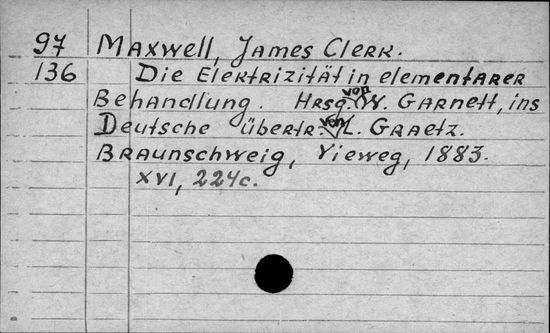 97 Maxwell, James Clerk.
136 Die Elektrizität in elementarer
Behandlung. Hrsg. von W. Garnett, ins
Deutsche übertr. von L. Graetz.
Braunschweig, Vieweg, 1883.
XVI, 224c.